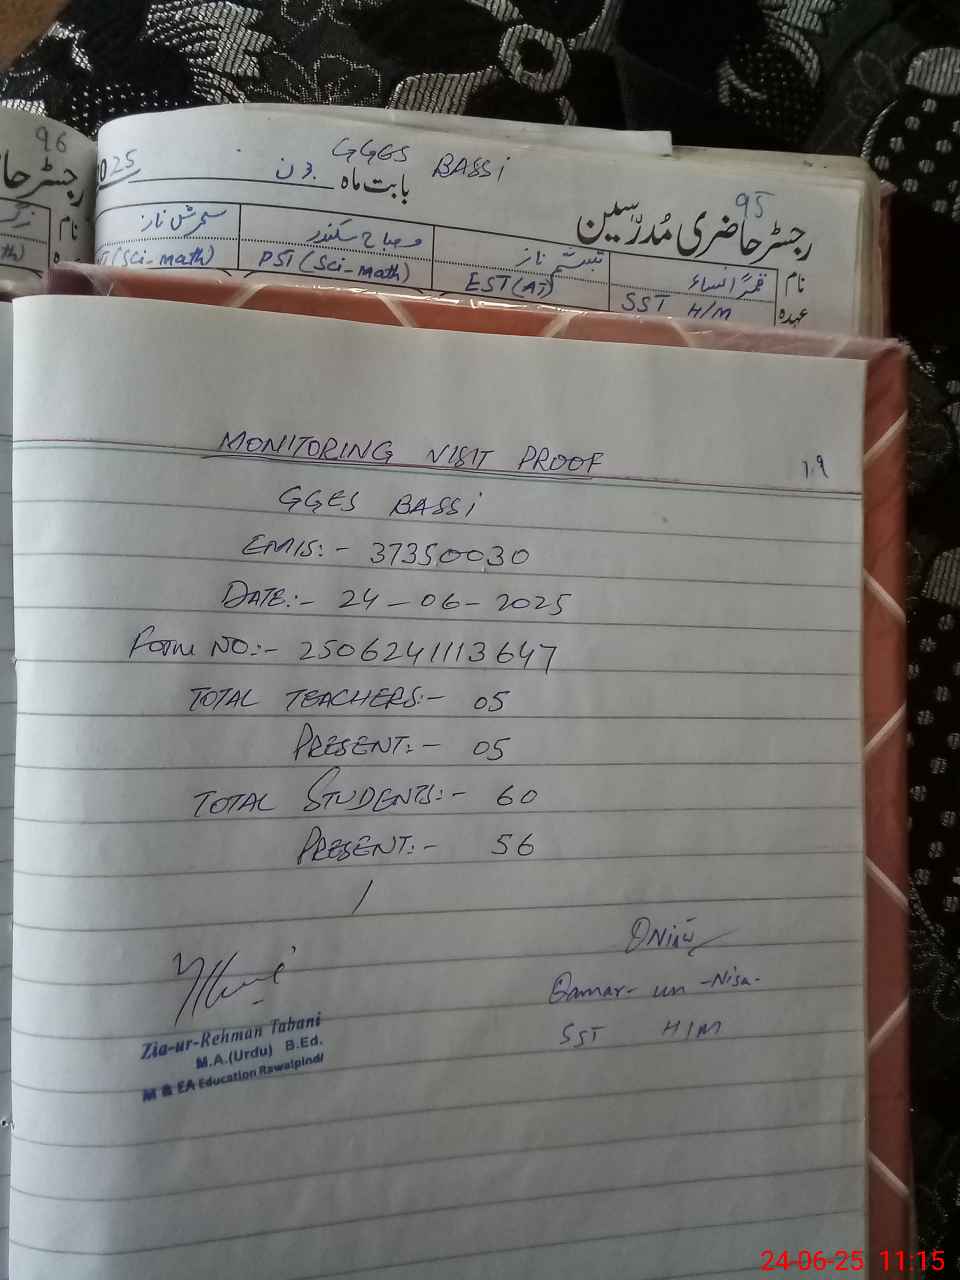 96
رجسٹر حا
025
GGES BASSi
بابت ماہ جون
95
رجسٹر حاضری مُدرّسین
نام
نام قمرالنساء تبسم ناز مصباح سکندر سحرش ناز
عہدہ SST H/M EST(AT) PST(Sci-math) T(Sci-math)
ath)
MONITORING VISIT PROOF
19
GGES BASSi
EMIS:- 37350030
DATE:- 24-06-2025
Form NO:- 2506241113647
TOTAL TEACHERS:- 05
PRESENT:- 05
TOTAL STUDENTS:- 60
PRESENT:- 56
Zia-ur-Rehman Tabani
M.A.(Urdu) B.Ed.
M & EA Education Rawalpindi
QNisa
Qamar-un-Nisa-
SST H/M
24-06-25 11:15